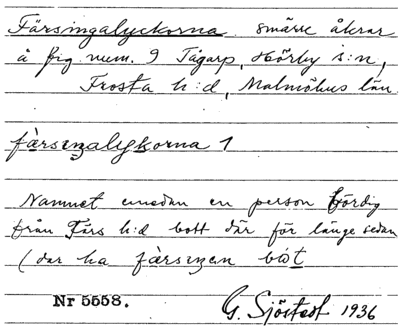 Färsingalyckorna smärre åkrar
å fig. num. 9 Tågarp, Hörby s:n,
Frosta h:d, Malmöhus län
färsiŋalykorna 1
Namnet emedan en person bördig
från Färs h:d bott där för länge sedan
(dar ha färsiŋen bot
Nr 5558. G. Sjöstedt 1936